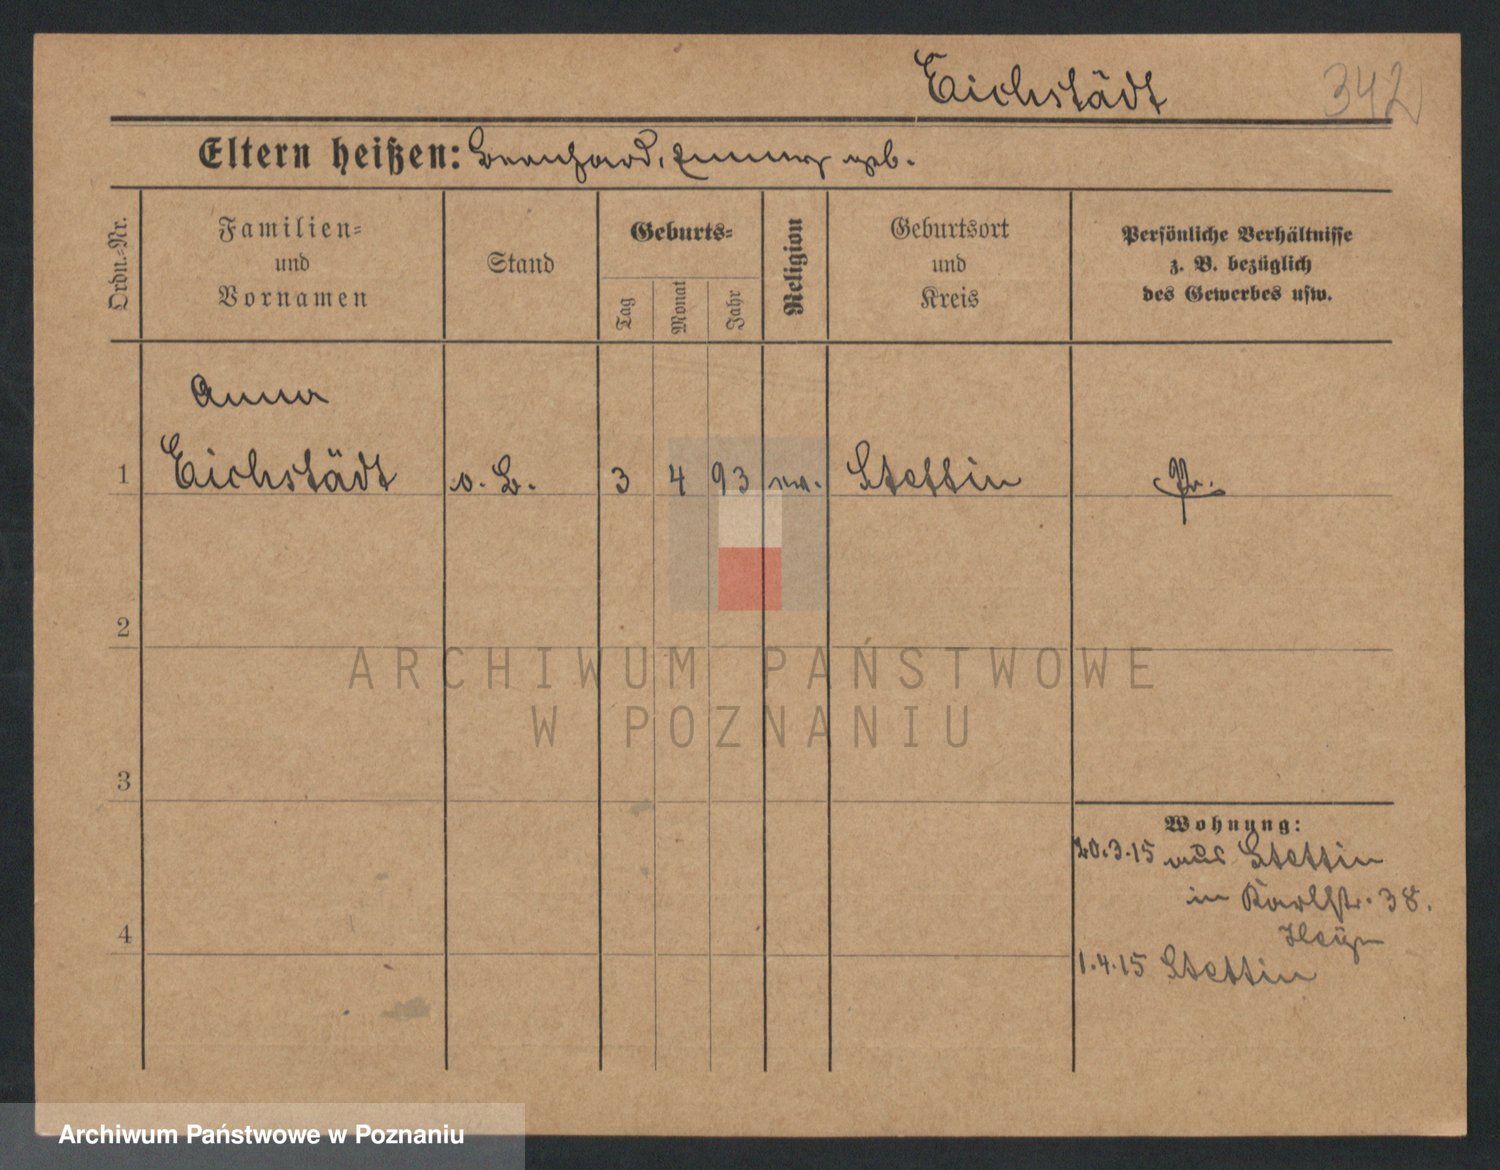 Eichstädt
342
Eltern heißen: Bernhard, geb.
Ordn.-Nr.
Familien-
und
Vornamen
Stand
Geburts-
Tag
Monat
Jahr
Religion
Geburtsort
und
Kreis
Persönliche Verhältnisse
z. B. bezüglich
des Gewerbes usw.
Anna
1 Eichstädt o. B. 3 4 93 ev. Stettin Pr.
2
ARCHIWUM PAŃSTWOWE
W POZNANIU
3
Wohnung:
20.3.15 aus Stettin
in Karlstr. 38.
4
1.4.15 Stettin
Archiwum Państwowe w Poznaniu